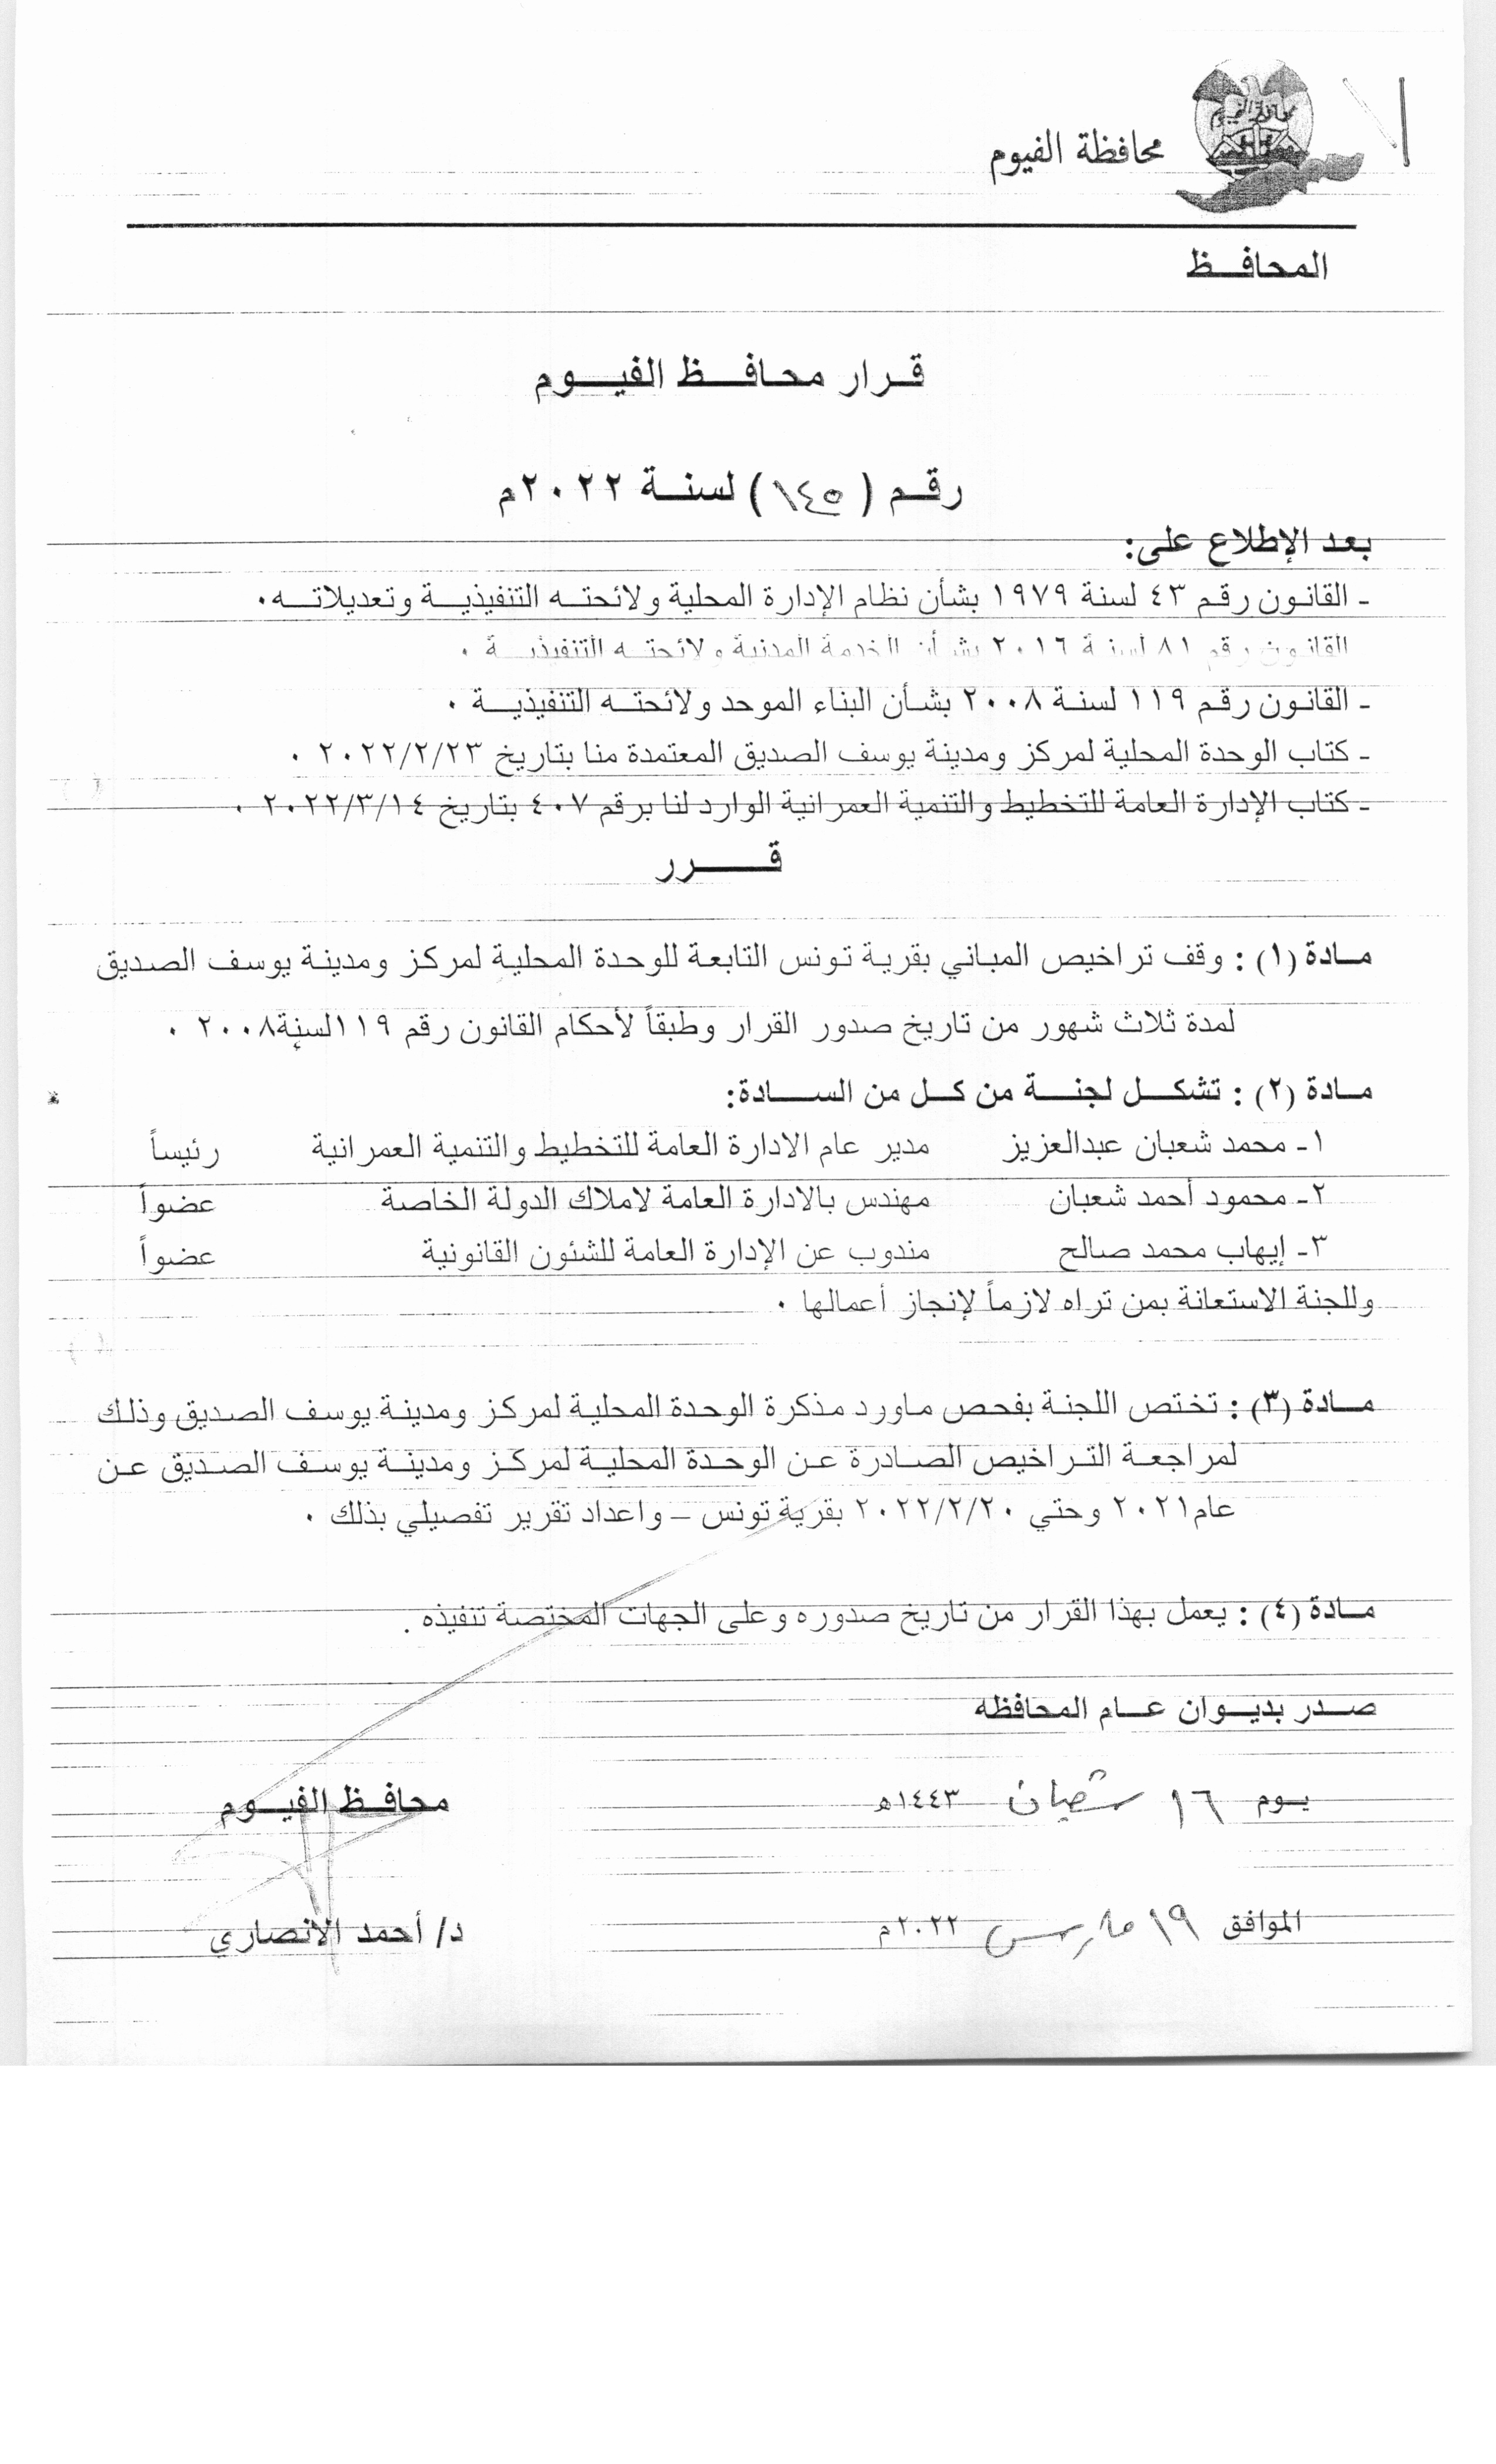 محافظة الفيوم
المحافظ
قرار محافظ الفيوم
رقم (١٤٥) لسنة ٢٠٢٢م
بعد الإطلاع على:
- القانون رقم ٤٣ لسنة ١٩٧٩ بشأن نظام الإدارة المحلية ولائحته التنفيذية وتعديلاته.
القانون رقم ٨١ لسنة ٢٠١٦ بشأن الخدمة المدنية ولائحته التنفيذية .
- القانون رقم ١١٩ لسنة ٢٠٠٨ بشأن البناء الموحد ولائحته التنفيذية .
- كتاب الوحدة المحلية لمركز ومدينة يوسف الصديق المعتمدة منا بتاريخ ٢٠٢٢/٢/٢٣ .
- كتاب الإدارة العامة للتخطيط والتنمية العمرانية الوارد لنا برقم ٤٠٧ بتاريخ ٢٠٢٢/٣/١٤ .
قرر
مادة (١) : وقف تراخيص المباني بقرية تونس التابعة للوحدة المحلية لمركز ومدينة يوسف الصديق
لمدة ثلاث شهور من تاريخ صدور القرار وطبقاً لأحكام القانون رقم ١١٩لسنة٢٠٠٨ .
مادة (٢) : تشكل لجنة من كل من السادة:
١- محمد شعبان عبدالعزيز مدير عام الادارة العامة للتخطيط والتنمية العمرانية رئيساً
٢- محمود أحمد شعبان مهندس بالادارة العامة لاملاك الدولة الخاصة عضواً
٣- إيهاب محمد صالح مندوب عن الإدارة العامة للشئون القانونية عضواً
وللجنة الاستعانة بمن تراه لازماً لإنجاز أعمالها .
مادة (٣) : تختص اللجنة بفحص ماورد مذكرة الوحدة المحلية لمركز ومدينة يوسف الصديق وذلك
لمراجعة التراخيص الصادرة عن الوحدة المحلية لمركز ومدينة يوسف الصديق عن
عام٢٠٢١ وحتي ٢٠٢٢/٢/٢٠ بقرية تونس – واعداد تقرير تفصيلي بذلك .
مادة (٤) : يعمل بهذا القرار من تاريخ صدوره وعلى الجهات المختصة تنفيذه .
صدر بديوان عام المحافظه
يوم ١٦ شعبان ١٤٤٣ه
محافظ الفيوم
الموافق ١٩ مارس ٢٠٢٢م
د/ أحمد الانصاري